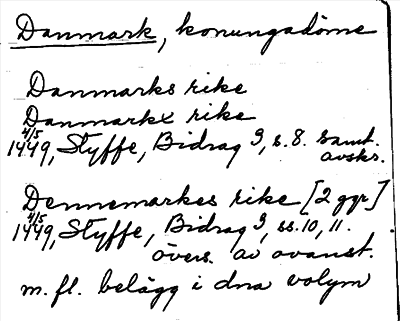 Danmark, konungadöme
Danmarks rike
Danmarkx rike
4/5
1449, Styffe, Bidrag 3, s. 8. samt.
avskr.
Dennemarkes rike [2 ggr]
4/5
1449, Styffe, Bidrag 3, ss. 10, 11.
övers. av ovanst.
m. fl. belägg i dna volym